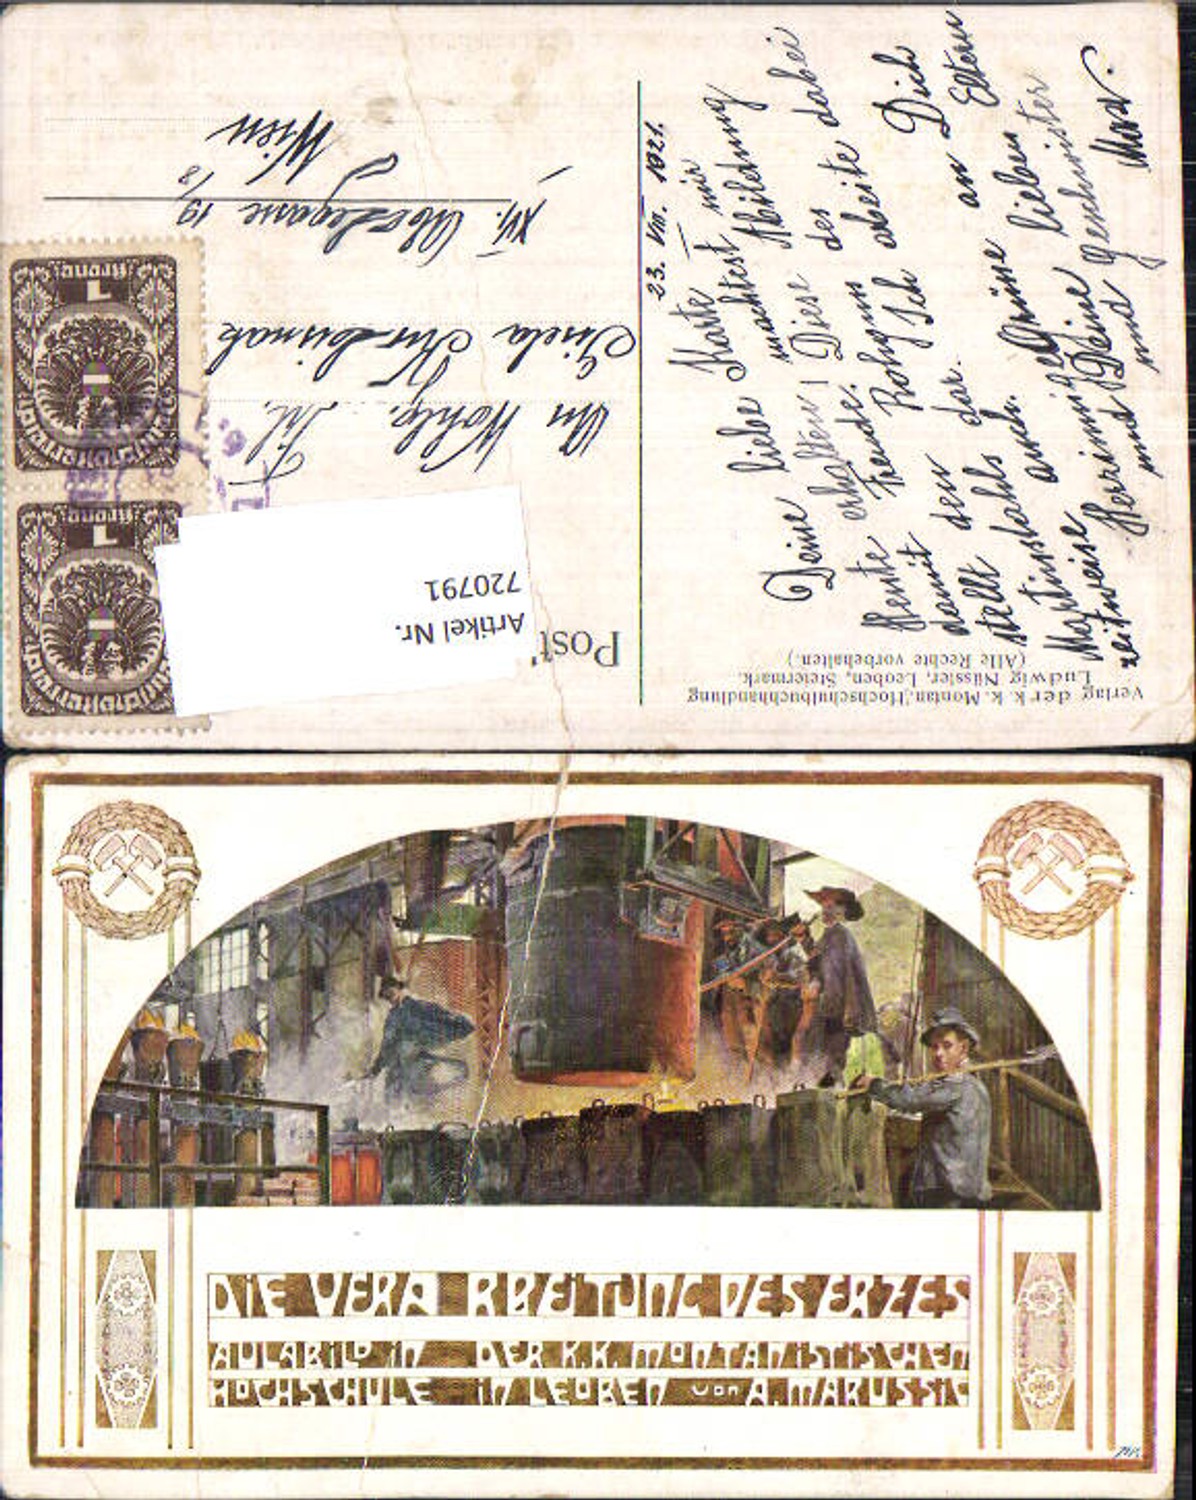 Verlag der k. k. Montan. Hochschulbuchhandlung
Ludwig Nüssler, Leoben, Steiermark.
(Alle Rechte vorbehalten.)
Post
Artikel Nr.
720791
1
Krone
Deutschösterreich
1
Krone
Deutschösterreich
An Wohlg. Frl.
Gisela
XVI. 19 1/8
Wien
23. VIII. 1921.
Deine liebe Karte mir
heute erhalten! machtest
Freude. Diese Abbildung
damit den Rohgang des dabei
stellt den dar. Ich arbeite
Martinstahls an Dich
auch. Grüsse an Eltern
lieben
zeitweise Herzinnige Geschwister
und Deine
und Max.
DIE VERARBEITUNG DES ERZES
AULABILD IN DER K.K. MONTANISTISCHEN
HOCHSCHULE IN LEOBEN von A. MARUSSIG